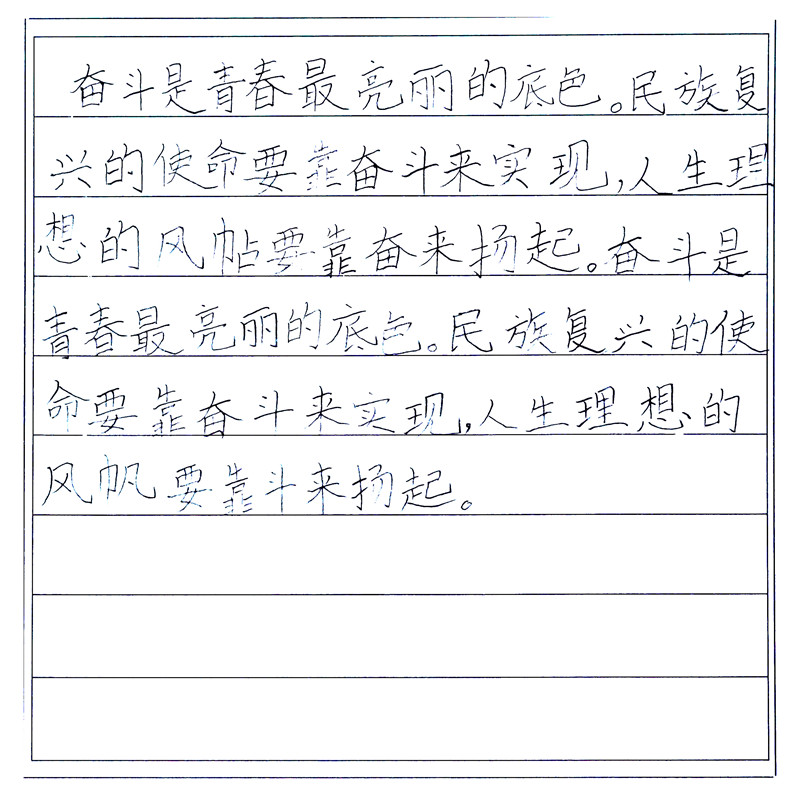 奋斗是青春最亮丽的底色。民族复
兴的使命要靠奋斗来实现,人生理
想的风帖要靠奋来扬起。奋斗是
青春最亮丽的底色。民族复兴的使
命要靠奋斗来实现,人生理想的
风帆要靠斗来扬起。